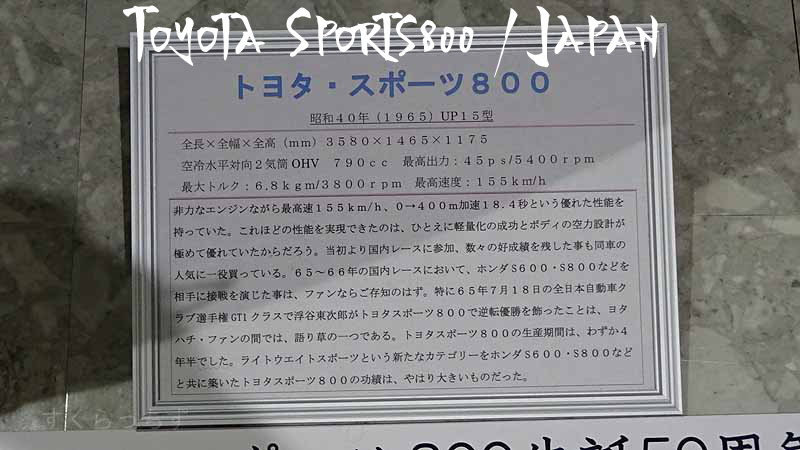 TOYOTA SPORTS800 / JAPAN
トヨタ・スポーツ８００
昭和４０年（１９６５）UP１５型
全長×全幅×全高（mm）３５８０×１４６５×１１７５
空冷水平対向２気筒 OHV　７９０cc　最高出力：４５ps/５４００rpm
最大トルク：６.８kgm/３８００rpm　最高速度：１５５km/h
非力なエンジンながら最高速１５５km/h、０→４００m加速１８.４秒という優れた性能を
持っていた。これほどの性能を実現できたのは、ひとえに軽量化の成功とボディの空力設計が
極めて優れていたからだろう。当初より国内レースに参加、数々の好成績を残した事も同車の
人気に一役買っている。６５～６６年の国内レースにおいて、ホンダS６００・S８００などを
相手に接戦を演じた事は、ファンならご存知のはず。特に６５年７月１８日の全日本自動車ク
ラブ選手権 GT1 クラスで浮谷東次郎がトヨタスポーツ８００で逆転優勝を飾ったことは、ヨタ
ハチ・ファンの間では、語り草の一つである。トヨタスポーツ８００の生産期間は、わずか４
年半でした。ライトウエイトスポーツという新たなカテゴリーをホンダS６００・S８００など
と共に築いたトヨタスポーツ８００の功績は、やはり大きいものだった。